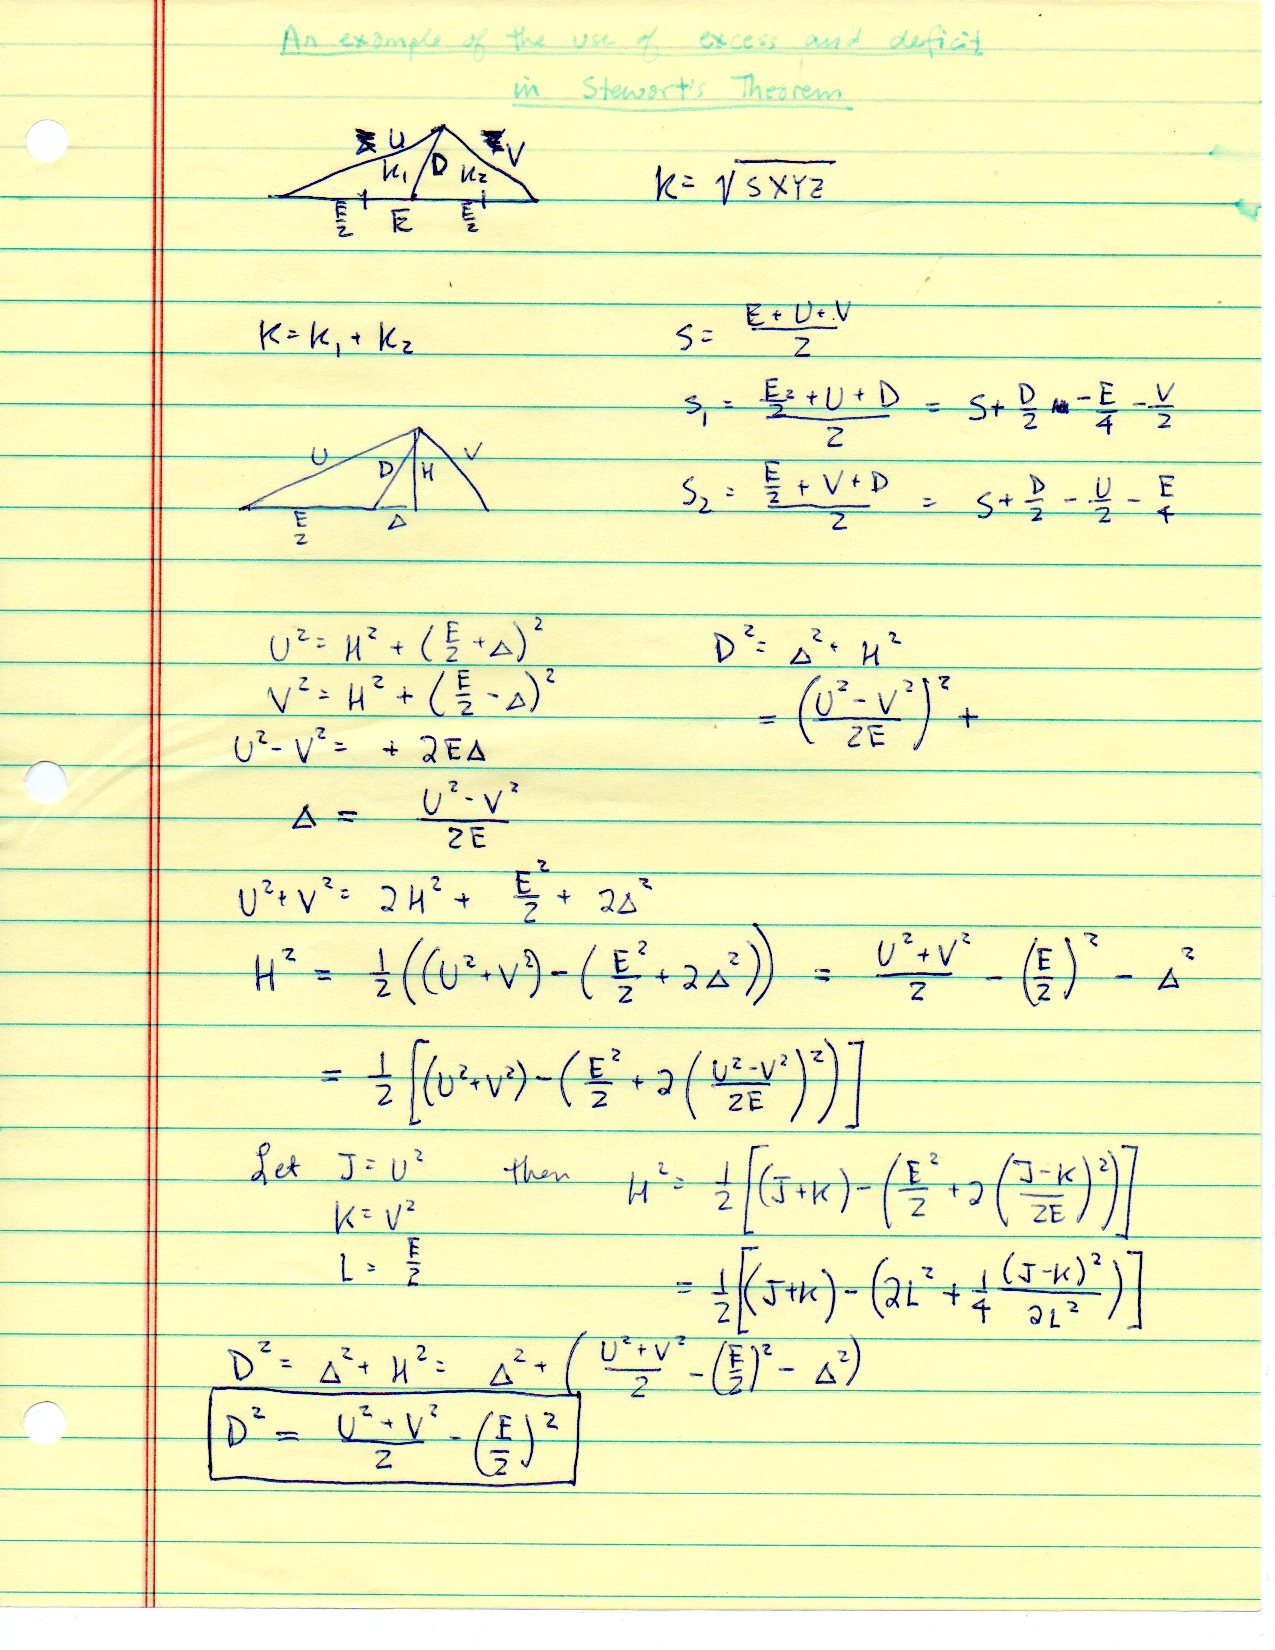 An example of the use of excess and deficit
in Stewart's Theorem
U V
K₁ D K₂
E/2 E E/2
K = √SXYZ
K = K₁ + K₂
S = (E + U + V)/2
S₁ = (E/2 + U + D)/2 = S + D/2 - E/4 - V/2
S₂ = (E/2 + V + D)/2 = S + D/2 - U/2 - E/4
U D H V
E/2 Δ
U² = H² + (E/2 + Δ)²
V² = H² + (E/2 - Δ)²
U² - V² = + 2EΔ
Δ = (U² - V²)/2E
D² = Δ² + H²
= ((U² - V²)/2E)² +
U² + V² = 2H² + E²/2 + 2Δ²
H² = 1/2((U² + V²) - (E²/2 + 2Δ²)) = (U² + V²)/2 - (E/2)² - Δ²
= 1/2[(U² + V²) - (E²/2 + 2((U² - V²)/2E)²)]
Let J = U² then H² = 1/2[(J + K) - (E²/2 + 2((J - K)/2E)²)]
K = V²
L = E/2
= 1/2[(J + K) - (2L² + 1/4 (J - K)²/2L²)]
D² = Δ² + H² = Δ² + ((U² + V²)/2 - (E/2)² - Δ²)
D² = (U² + V²)/2 - (E/2)²